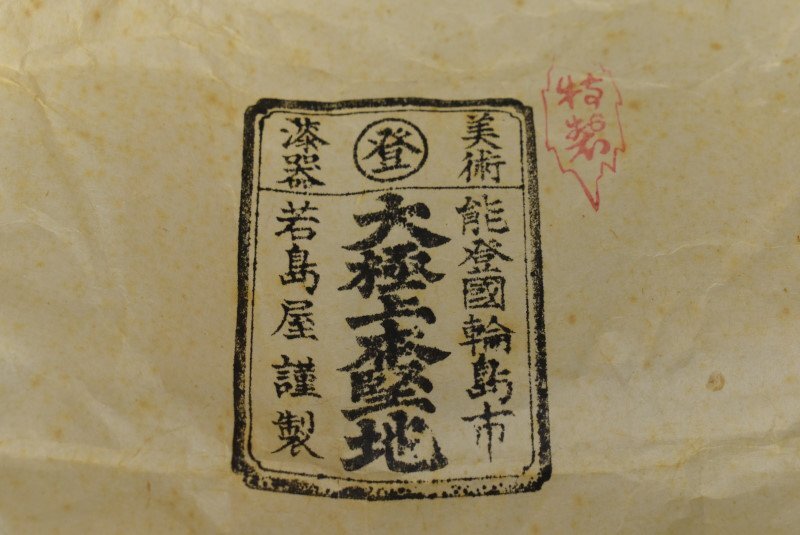 特製
美術
登
漆器
能登國輪島市
大極上本堅地
若島屋謹製